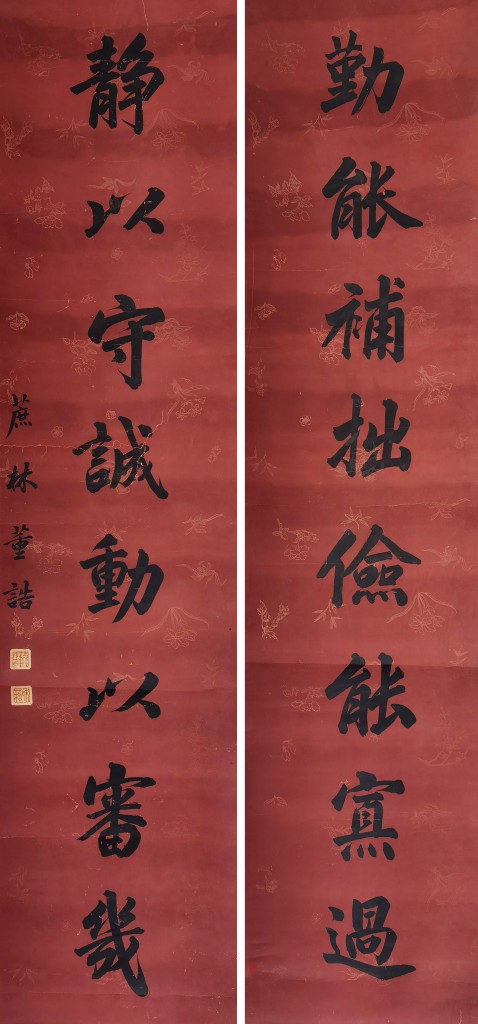 勤能補拙儉能寡過
靜以守誠動以審幾
蔗林董誥